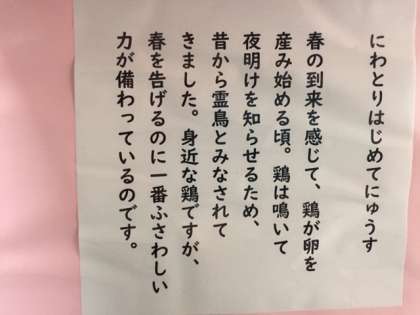 にわとりはじめてにゅうす
春の到来を感じて、鶏が卵を
産み始める頃。鶏は鳴いて
夜明けを知らせるため、
昔から霊鳥とみなされて
きました。身近な鶏ですが、
春を告げるのに一番ふさわしい
力が備わっているのです。